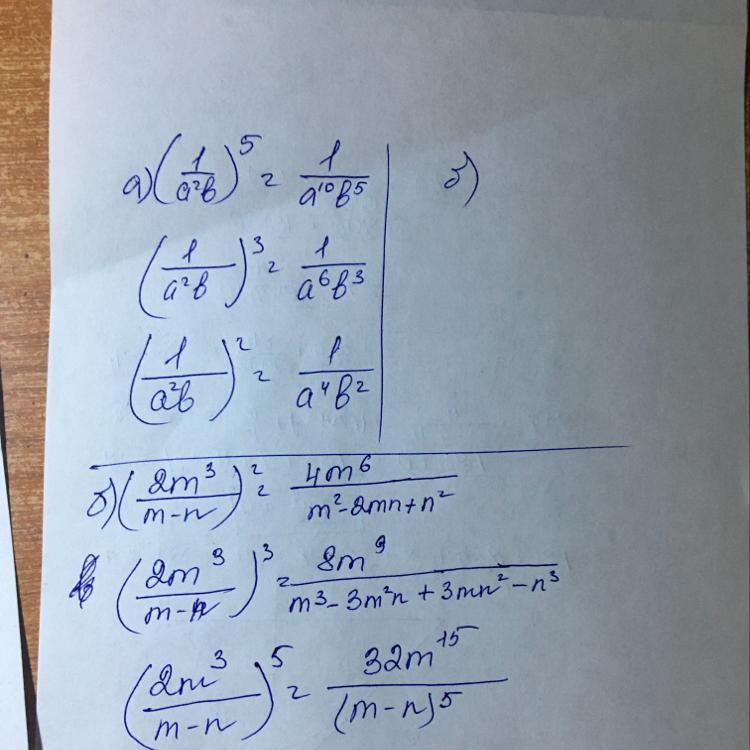 а) (1/a²b)⁵ = 1/a¹⁰b⁵
б)
(1/a²b)³ = 1/a⁶b³
(1/a²b)² = 1/a⁴b²
б) (2m³/m-n)² = 4m⁶/m²-2mn+n²
(2m³/m-n)³ = 8m⁹/m³-3m²n+3mn²-n³
(2m³/m-n)⁵ = 32m¹⁵/(m-n)⁵